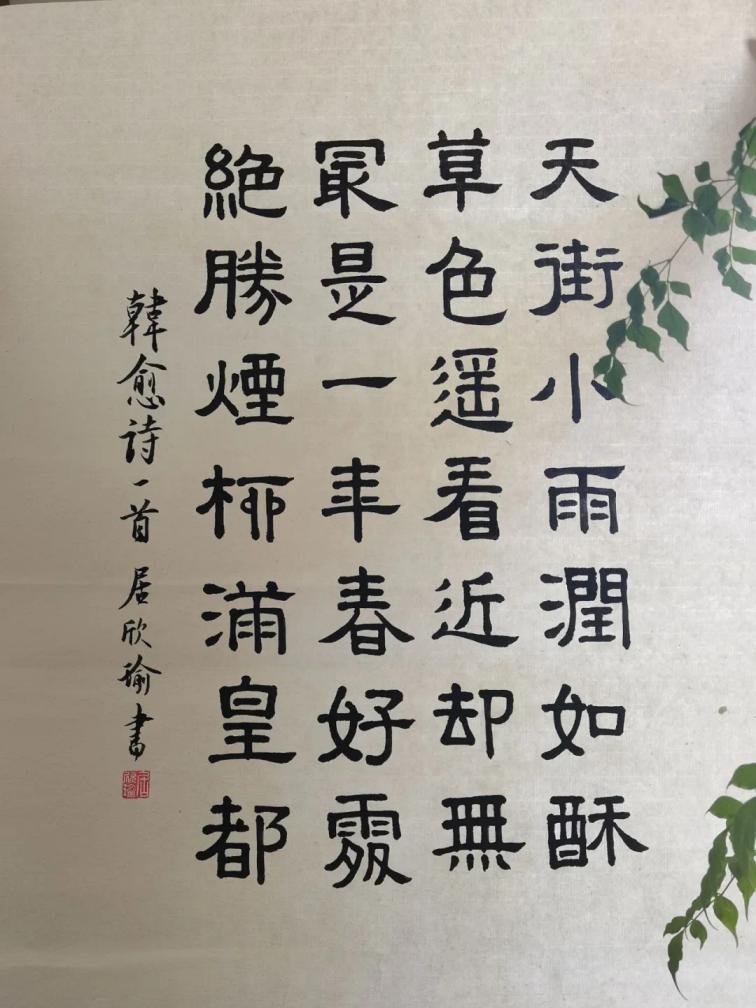 天街小雨潤如酥
草色遥看近却無
冣是一年春好處
絶勝煙柳滿皇都
韓愈詩一首 居欣瑜書
居欣瑜